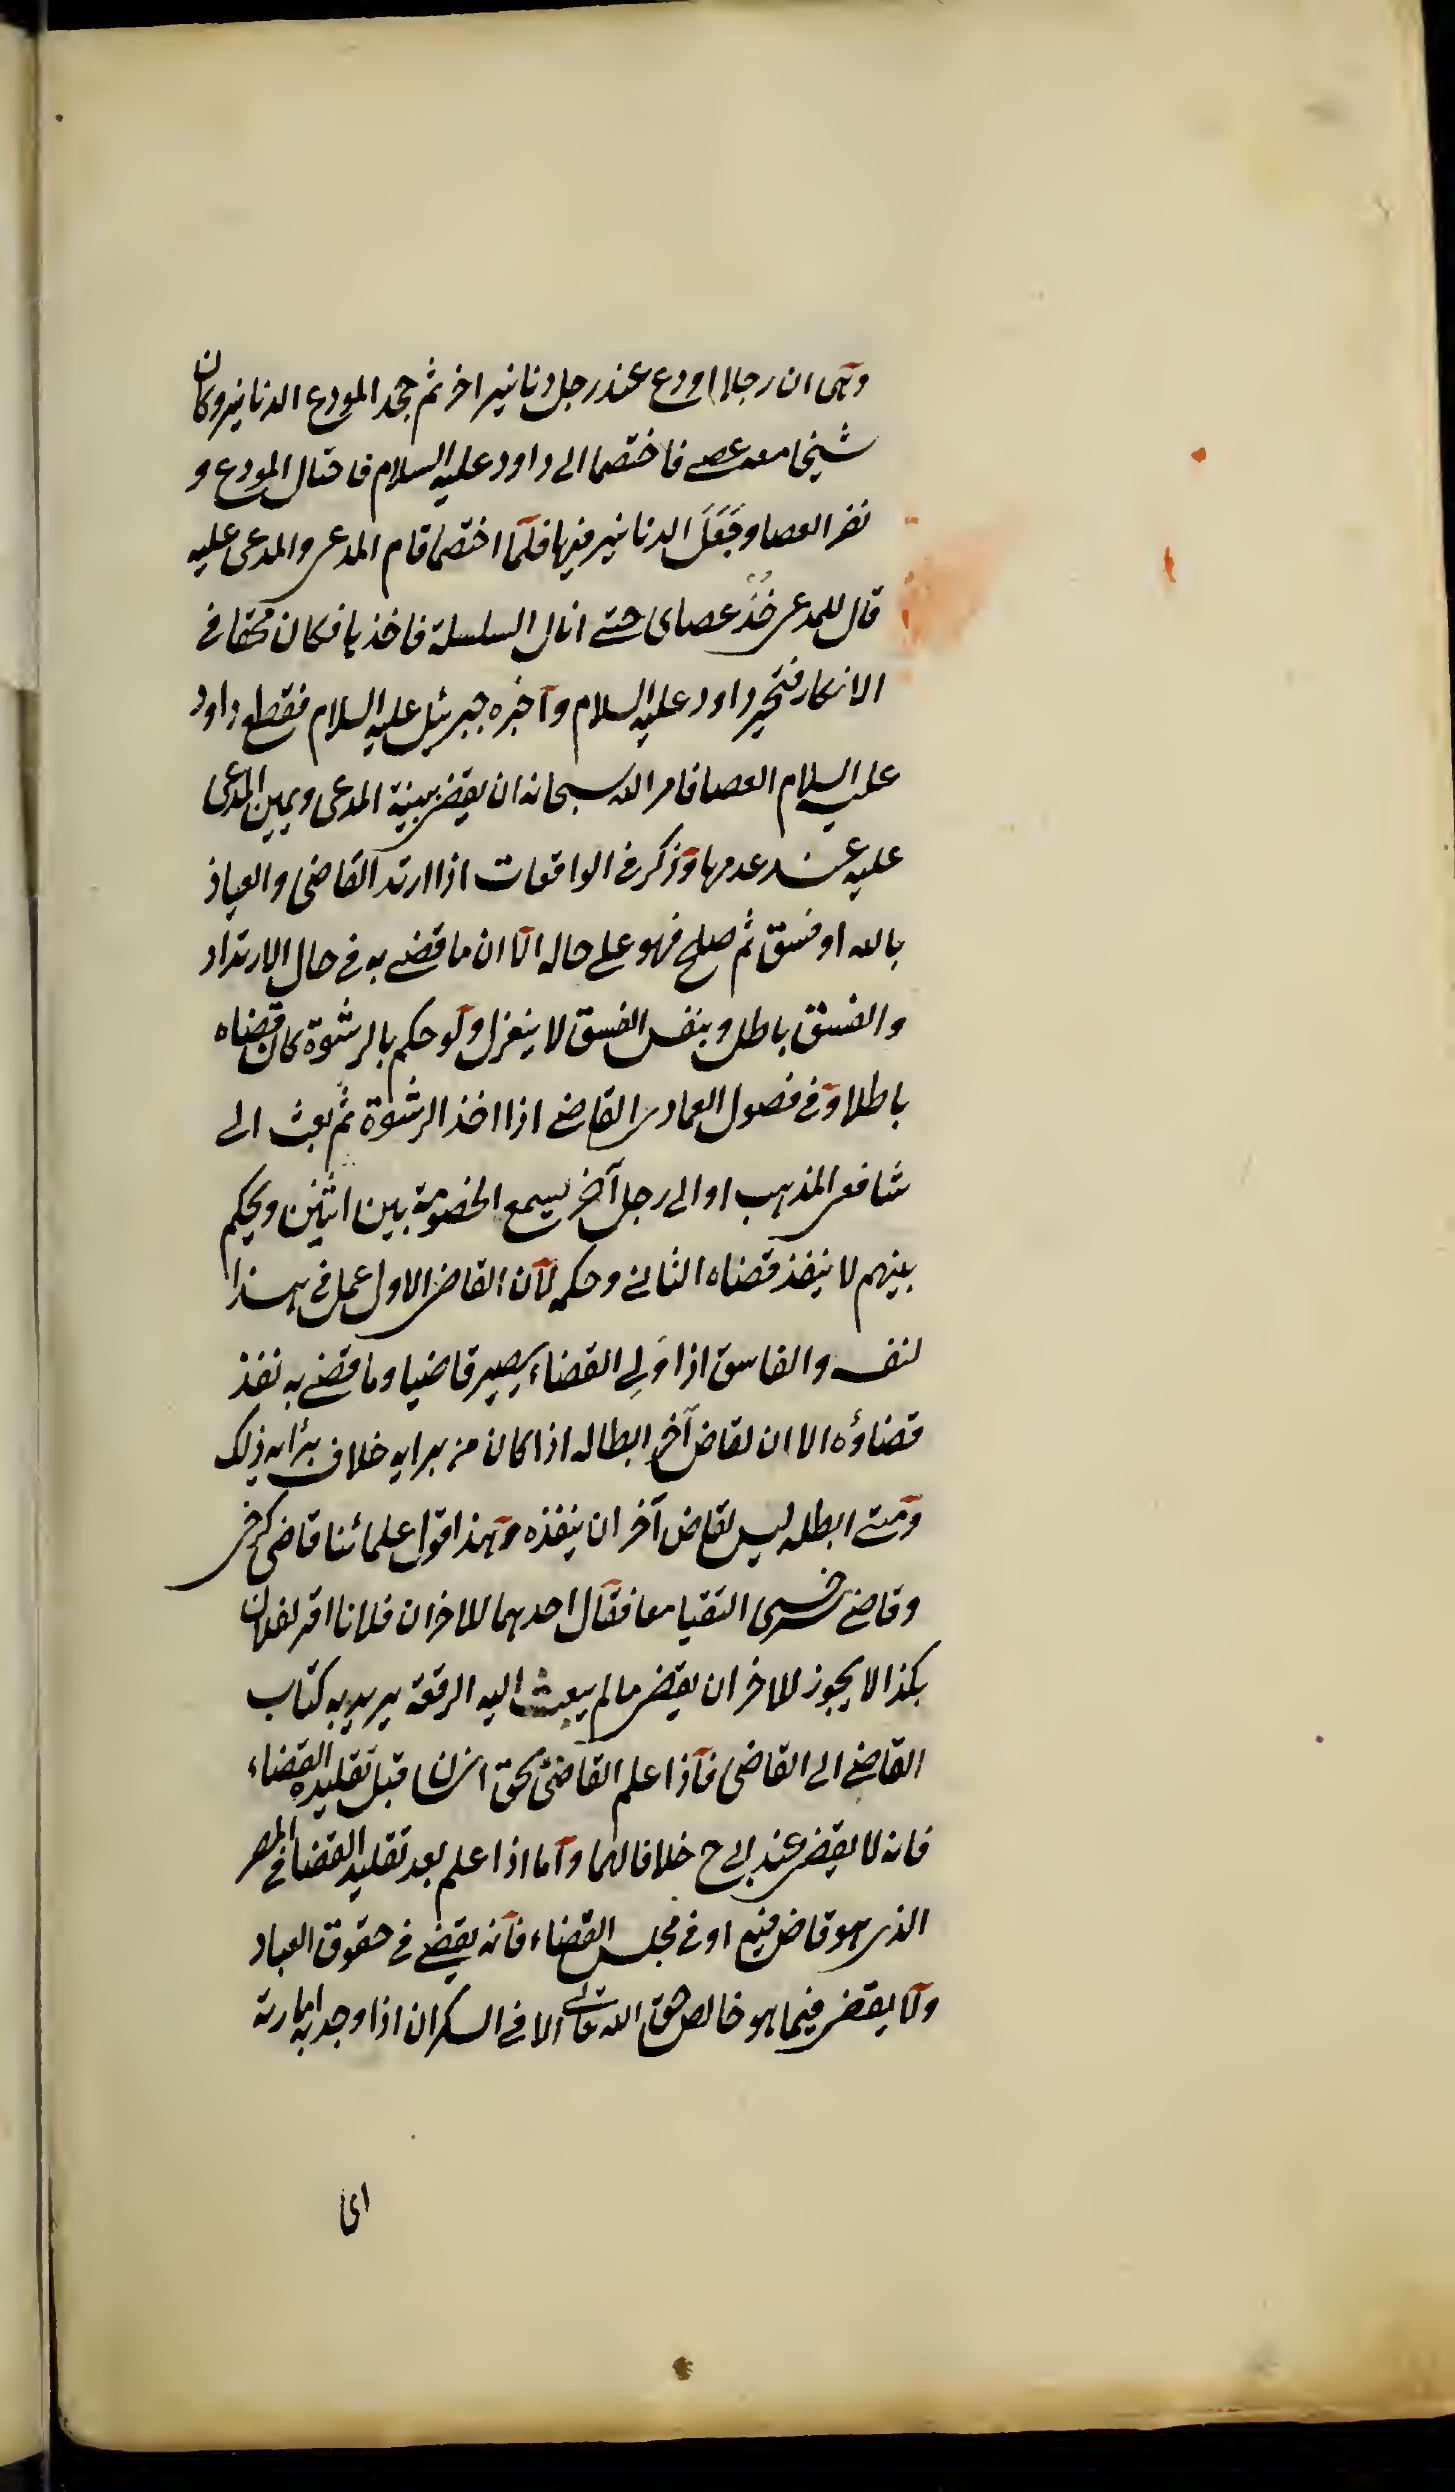 وهى ان رجلا اودع عند رجل دنانير اخر ثم جحد المودع الدنانير وكان
شيخا معه عصى فاختصما الى داود عليه السلام فاحتال المودع و
نقر العصا وجَعَلَ الدنانير فيها فلما اختصما قام المدعى والمدعى عليه
قال للمدعى خُذ عصاى حتى انال السلسلة فاخذها فكان محقا فى
الانكار فتحير داود عليه السلام واخبره جبرئيل عليه السلام فقطع داود
عليه السلام العصا فامر الله سبحانه ان يقضى ببينة المدعى ويمين المدعى
عليه عند عدمها وذكر فى الواقعات اذا ارتد القاضى والعياذ
بالله او فسق ثم صلح فهو على حاله الا ان ما قضى به فى حال الارتداد
والفسق باطل وبنفس الفسق لا ينعزل ولو حكم بالرشوة كان قضاه
باطلا وفى فصول العمادى القاضى اذا اخذ الرشوة ثم بعث الى
شافعى المذهب او الى رجل آخر ليسمع الخصومة بين اثنين ويحكم
بينهم لا ينفذ قضاه الثانى وحكمه لان القاضى الاول عمل فى هذا
لنفسه والفاسق اذا وَلِى القضاء يصير قاضيا وما قضى به نفذ
قضاؤه الا ان لقاض آخر ابطاله اذا كان من برايه خلاف برايه ذلك
ومتى ابطله ليس لقاض آخر ان ينفذه وهذا قول علمائنا قاضى كرخى
وقاضى التقيا معا فقال احدهما للاخر ان فلانا اقر لفلان
بكذا لا يجوز للاخر ان يقضى ما لم يبعث اليه الرقعة يريد به كتاب
القاضى الى القاضى فاذا علم القاضى بحق انسان قبل تقليده القضاء
فانه لا يقضى عند ابى ح خلافا لهما واما اذا علم بعد تقليد القضا فى المصر
الذى هو قاض فيه او فى مجلس القضاء فانه يقضى فى حقوق العباد
ولا يقضى فيما هو خالص حق الله تعالى الا فى السكران اذا وجد به امارته
اى